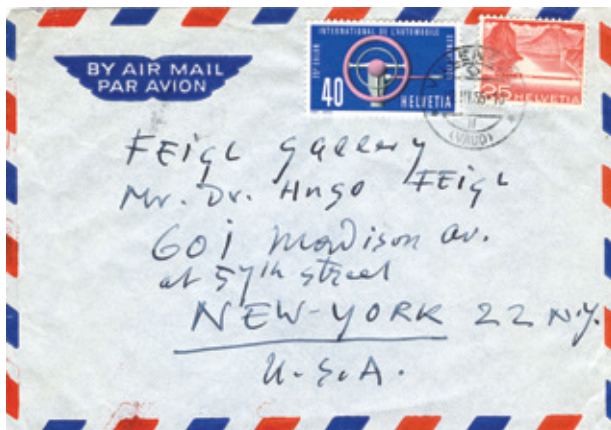 BY AIR MAIL
PAR AVION
INTERNATIONAL DE L'AUTOMOBILE
40
HELVETIA
25 HELVETIA
(VAUD)
FEigl gallery
Mr. Dr. Hugo FEigl
601 Madison av.
at 57th street
NEW-YORK 22 N.Y.
U.S.A.